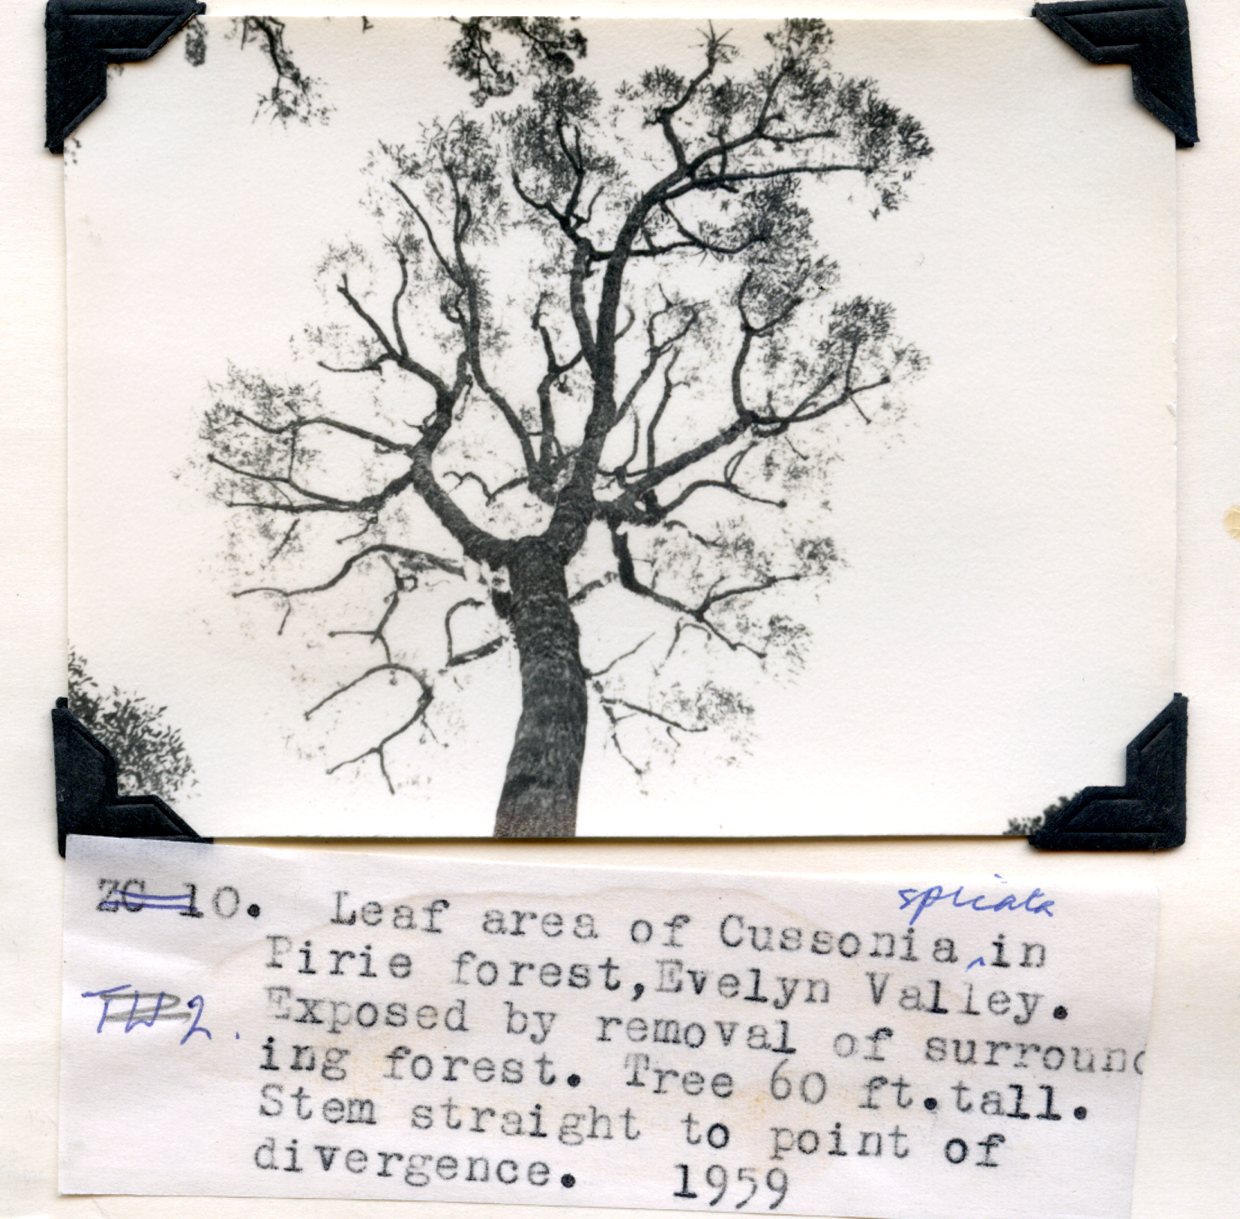 ZC 10. Leaf area of Cussonia ^ spicata in
Pirie forest, Evelyn Valley.
TW 2. Exposed by removal of surround
ing forest. Tree 60 ft.tall.
Stem straight to point of
divergence. 1959